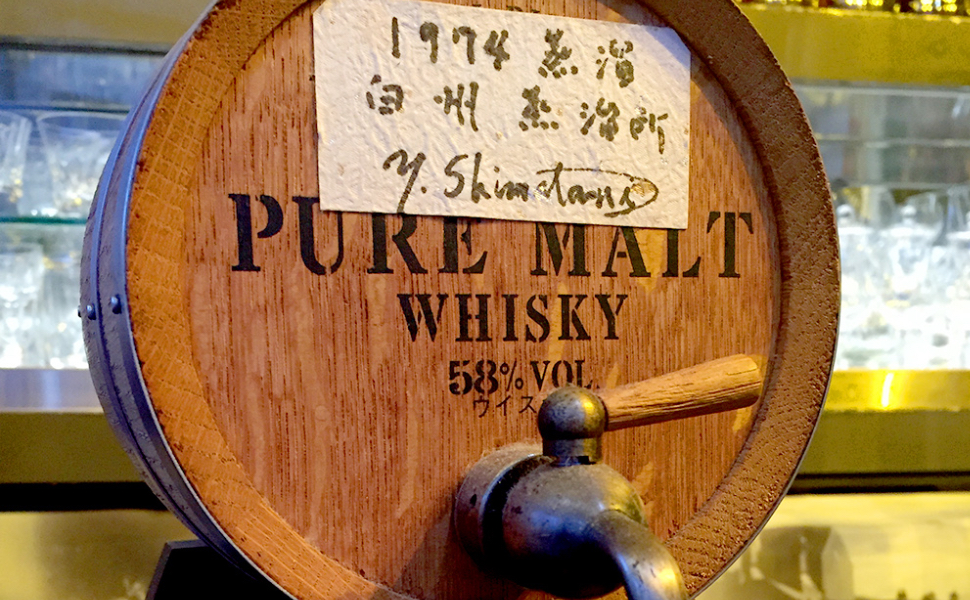 1974 蒸溜
白州 蒸溜所
Y. Shimatani
PURE MALT
WHISKY
58% VOL.
ウイス